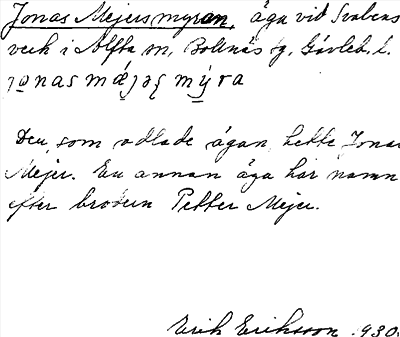 Jonas Mejers myran, äga vid Svabens
verk i Alfta sn, Bollnäs tg, Gävleb. l.
Den, som odlade ägan, hette Jonas
Mejer. En annan äga har namn
efter brodern Petter Mejer.
Erik Eriksson 1930.